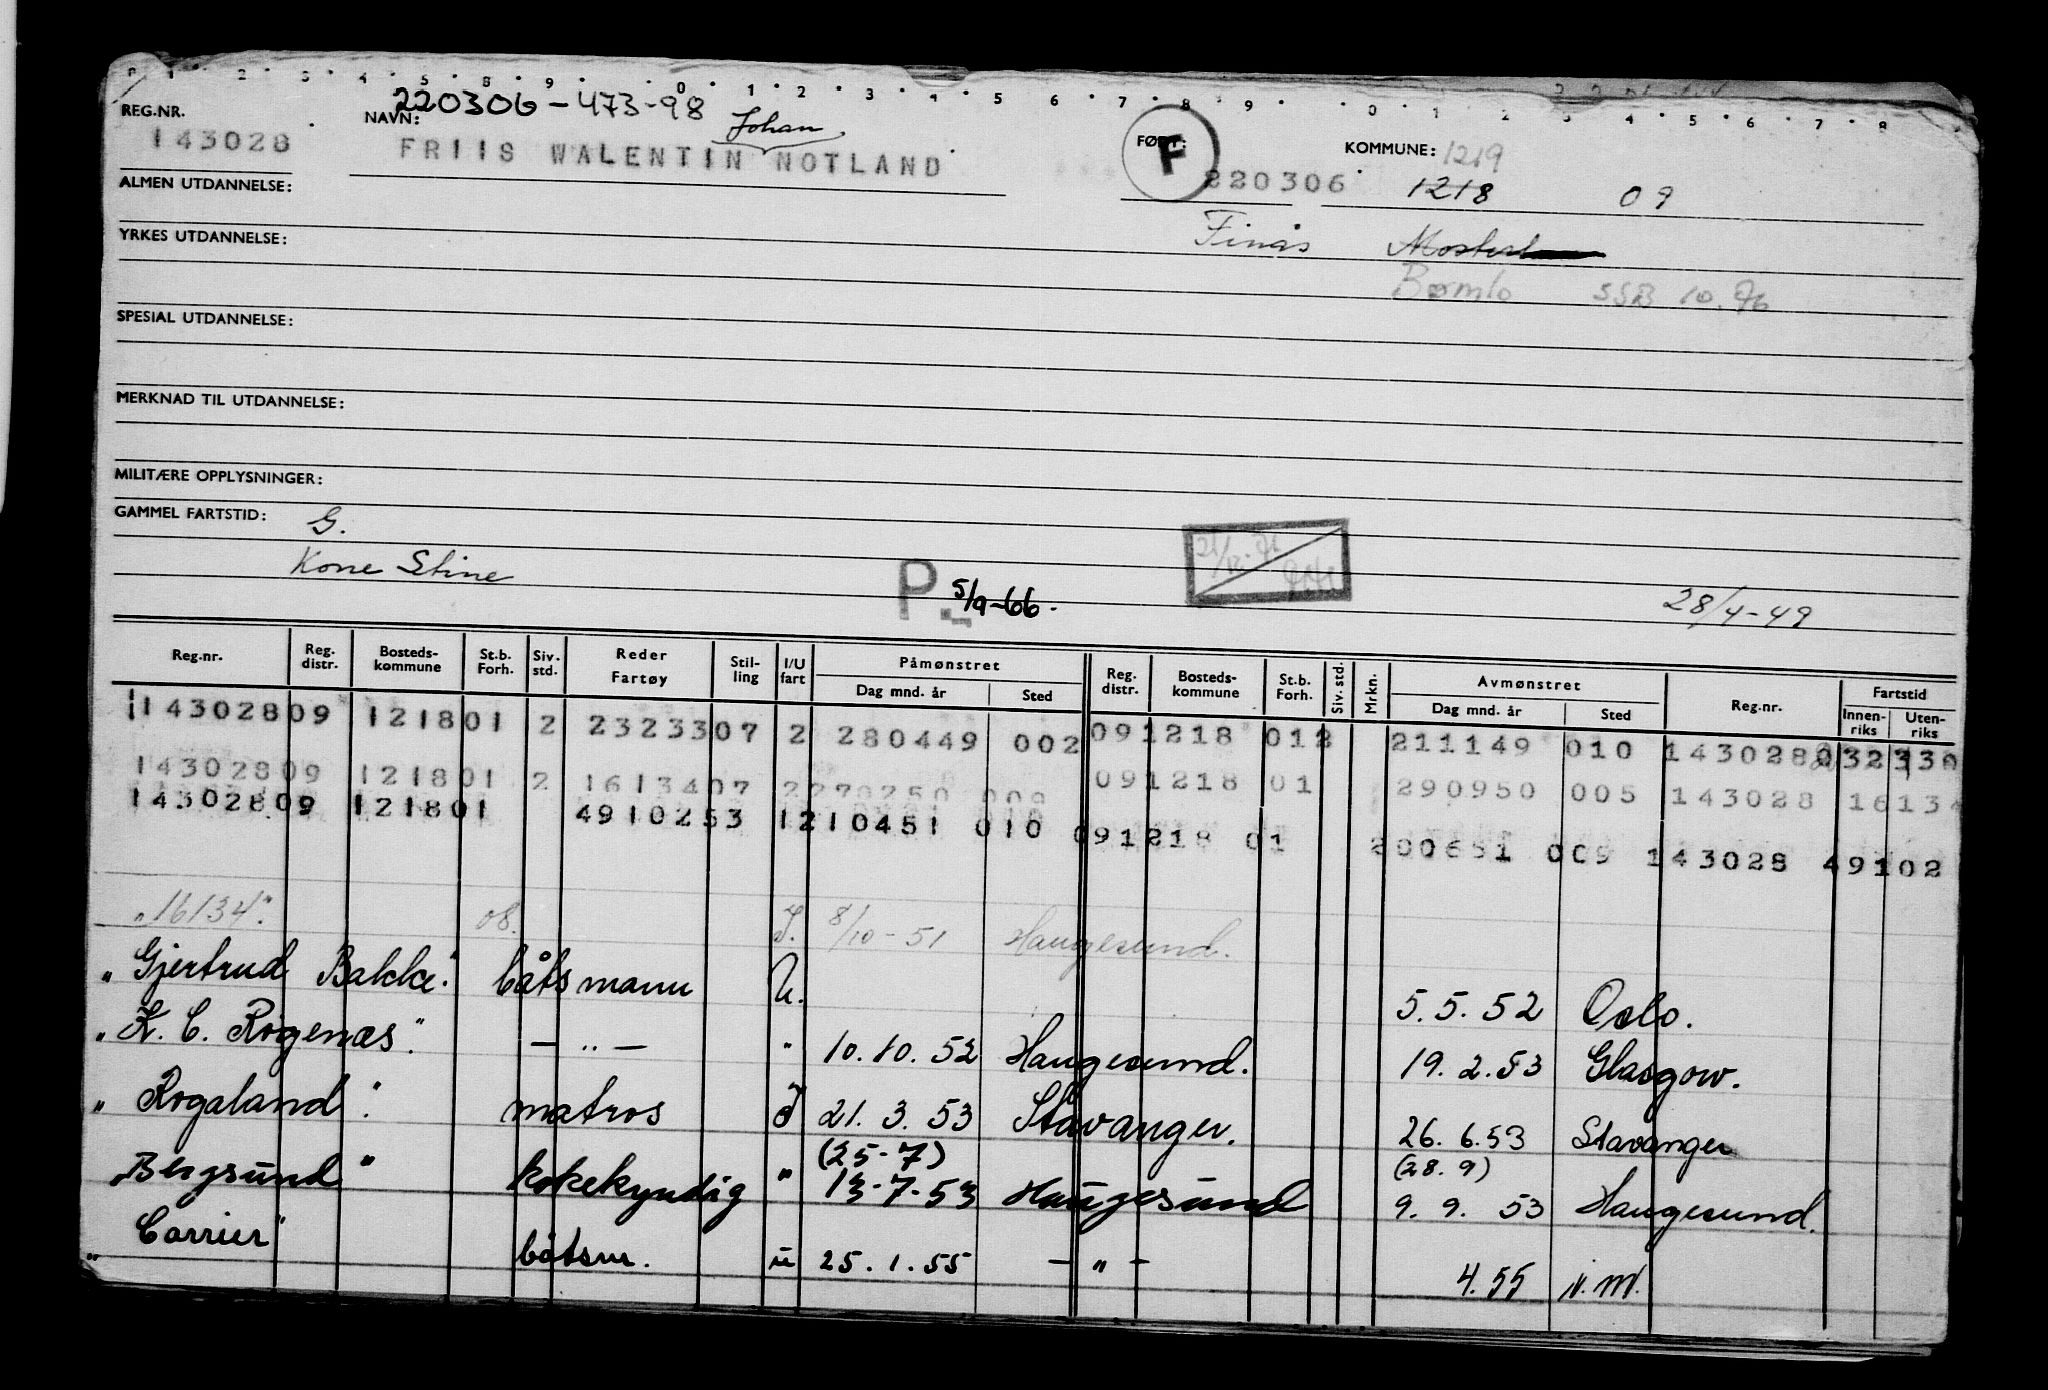 0 1 2 3 4 5 8 9 0 1 2 3 4 5 6 7 8 9 0 1 2 3 4 5 6 7 8
REG.NR. NAVN: 220306-473-98 FØDT: F KOMMUNE: 1219
Johan
143028 FRIIS WALENTIN NOTLAND 220306 1218 09
ALMEN UTDANNELSE:
Finås Mosterhamn
YRKES UTDANNELSE:
Bømlo SSB 10.76
SPESIAL UTDANNELSE:
MERKNAD TIL UTDANNELSE:
MILITÆRE OPPLYSNINGER:
GAMMEL FARTSTID: G.
Kone Stine
P. 5/9-66.
28/4-49
Reg.nr. Reg. distr. Bosteds-kommune St.b. Forh. Siv. std. Reder Fartøy Stil-ling I/U fart Påmønstret Dag mnd. år Sted Reg. distr. Bosteds-kommune St.b. Forh. Siv. std. Mrkn. Avmønstret Dag mnd. år Sted Reg.nr. Fartstid Innen-riks Uten-riks
143028 09 1218 01 2 23233 07 2 280449 002 09 1218 01 2 211149 010 143028
143028 09 1218 01 2 16134 07 2 270250 009 09 1218 01 290950 005 143028 16134
143028 09 1218 01 49102 53 1 210451 010 09 1218 01 200651 009 143028 49102
"16134". 08. I. 8/10-51 Haugesund.
"Gjertrud Bakke". båtsmann U. 5.5.52 Oslo.
"K. C. Rogenæs." — " — " 10.10.52 Haugesund. 19.2.53 Glasgow.
"Rogaland". matros I 21.3.53 Stavanger. 26.6.53 Stavanger
(25-7) (28.9)
"Bergsund" kokekyndig " 13-7-53 Haugesund 9.9.53 Haugesund.
"Carrier" båtsm. u 25.1.55 — " — 4.55 N.M.